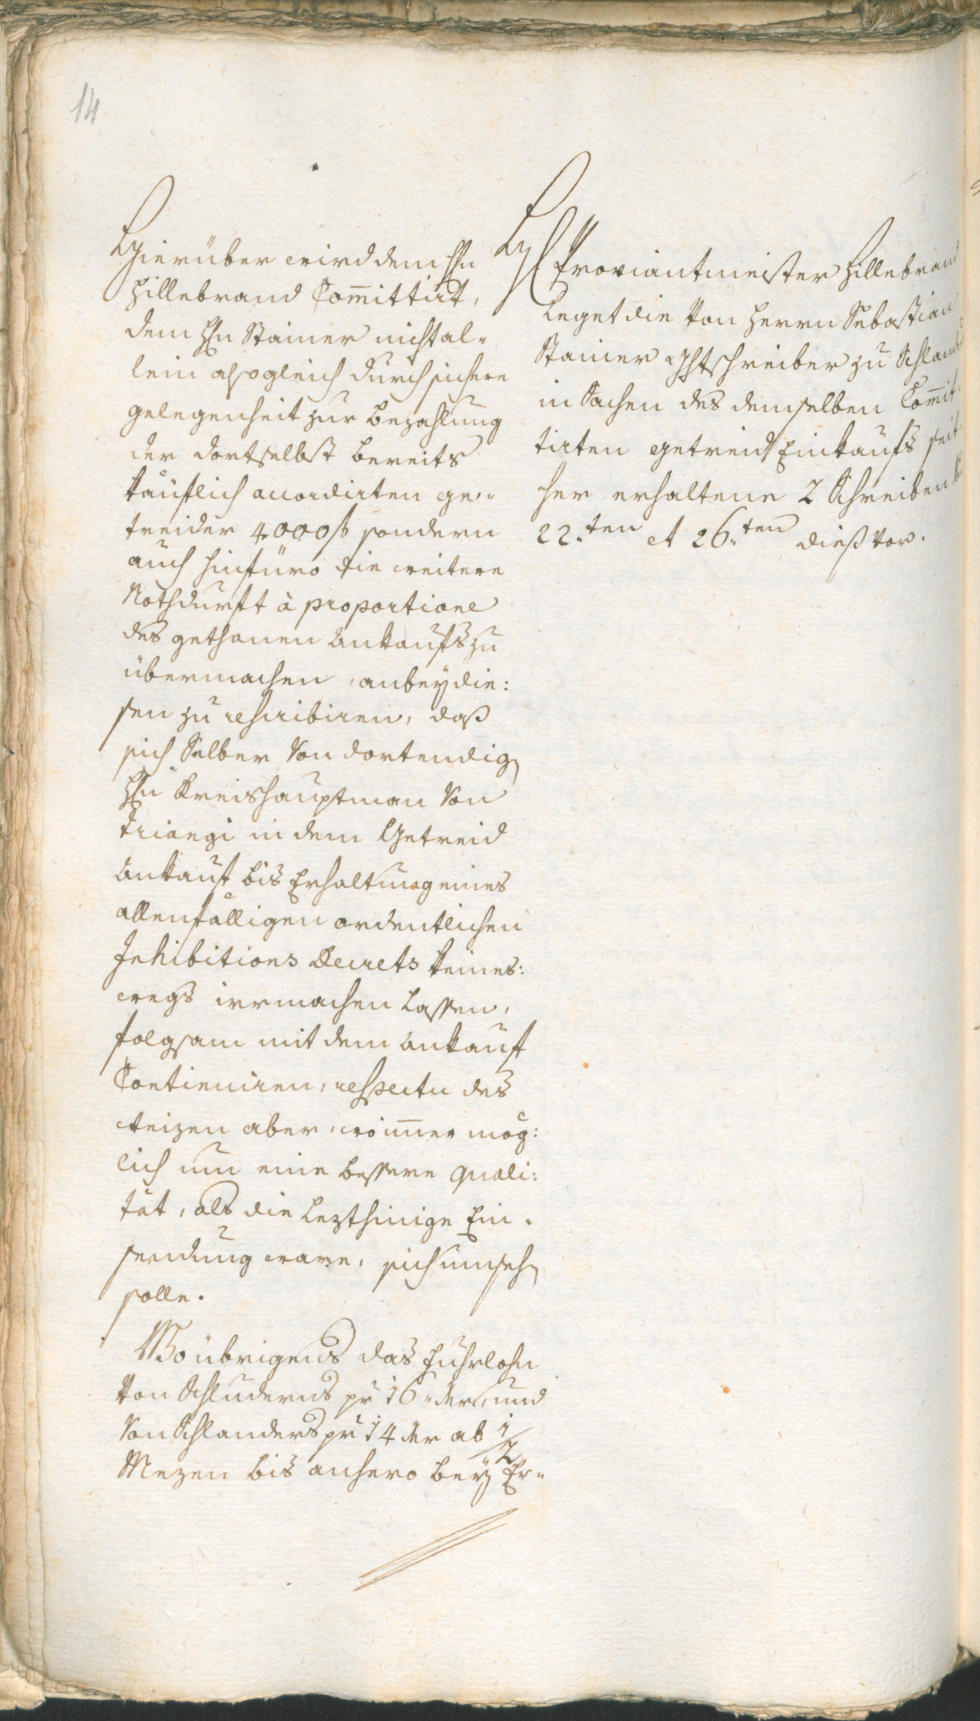 14
Hierüber wird dem Hn
Hillebrand Com̅ittirt,
dem Hn Stainer nicht al-
lein alsogleich durch sichere
gelegenheit zur bezahlung
der dortselbst bereits
käuflich accordirten ge-
treider 4000 f sondern
auch hinfüro die weitere
Nothdurft à proportione
des gethanen Ankaufs zu
übermachen, anbey die:
sen zu rescribiren, daß
sich Selber Von dortendig
Hn Kreishauptman Von
Triangi in dem Getreid
Ankauf bis Erhaltung eines
allenfälligen ordentlichen
Inhibitions Decrets keines:
wegs irrmachen lassen,
folgsam mit dem Ankauf
Continuiren, respectu des
Weizen aber, wo im̅er mög:
lich um eine bessere Quali:
tät, als die letzthinige Ein-
sendung ware, sich umseh
solle.
Wo übrigens das Fuhrlohn
Von Schluderns pr 16 und
Von Schlanders pr 14 ab 1/2
Mezen bis anhero bey Er-
H Proviantmeister Hillebrand
Leget die Von Herrn Sebastian
Stainer Ghtschreiber zu Schland
in Sachen des demselben Com̅it
tirten getreid Einkaufs seit
her erhaltene 2 Schreiben
22.ten et 26.ten dieß Vor.